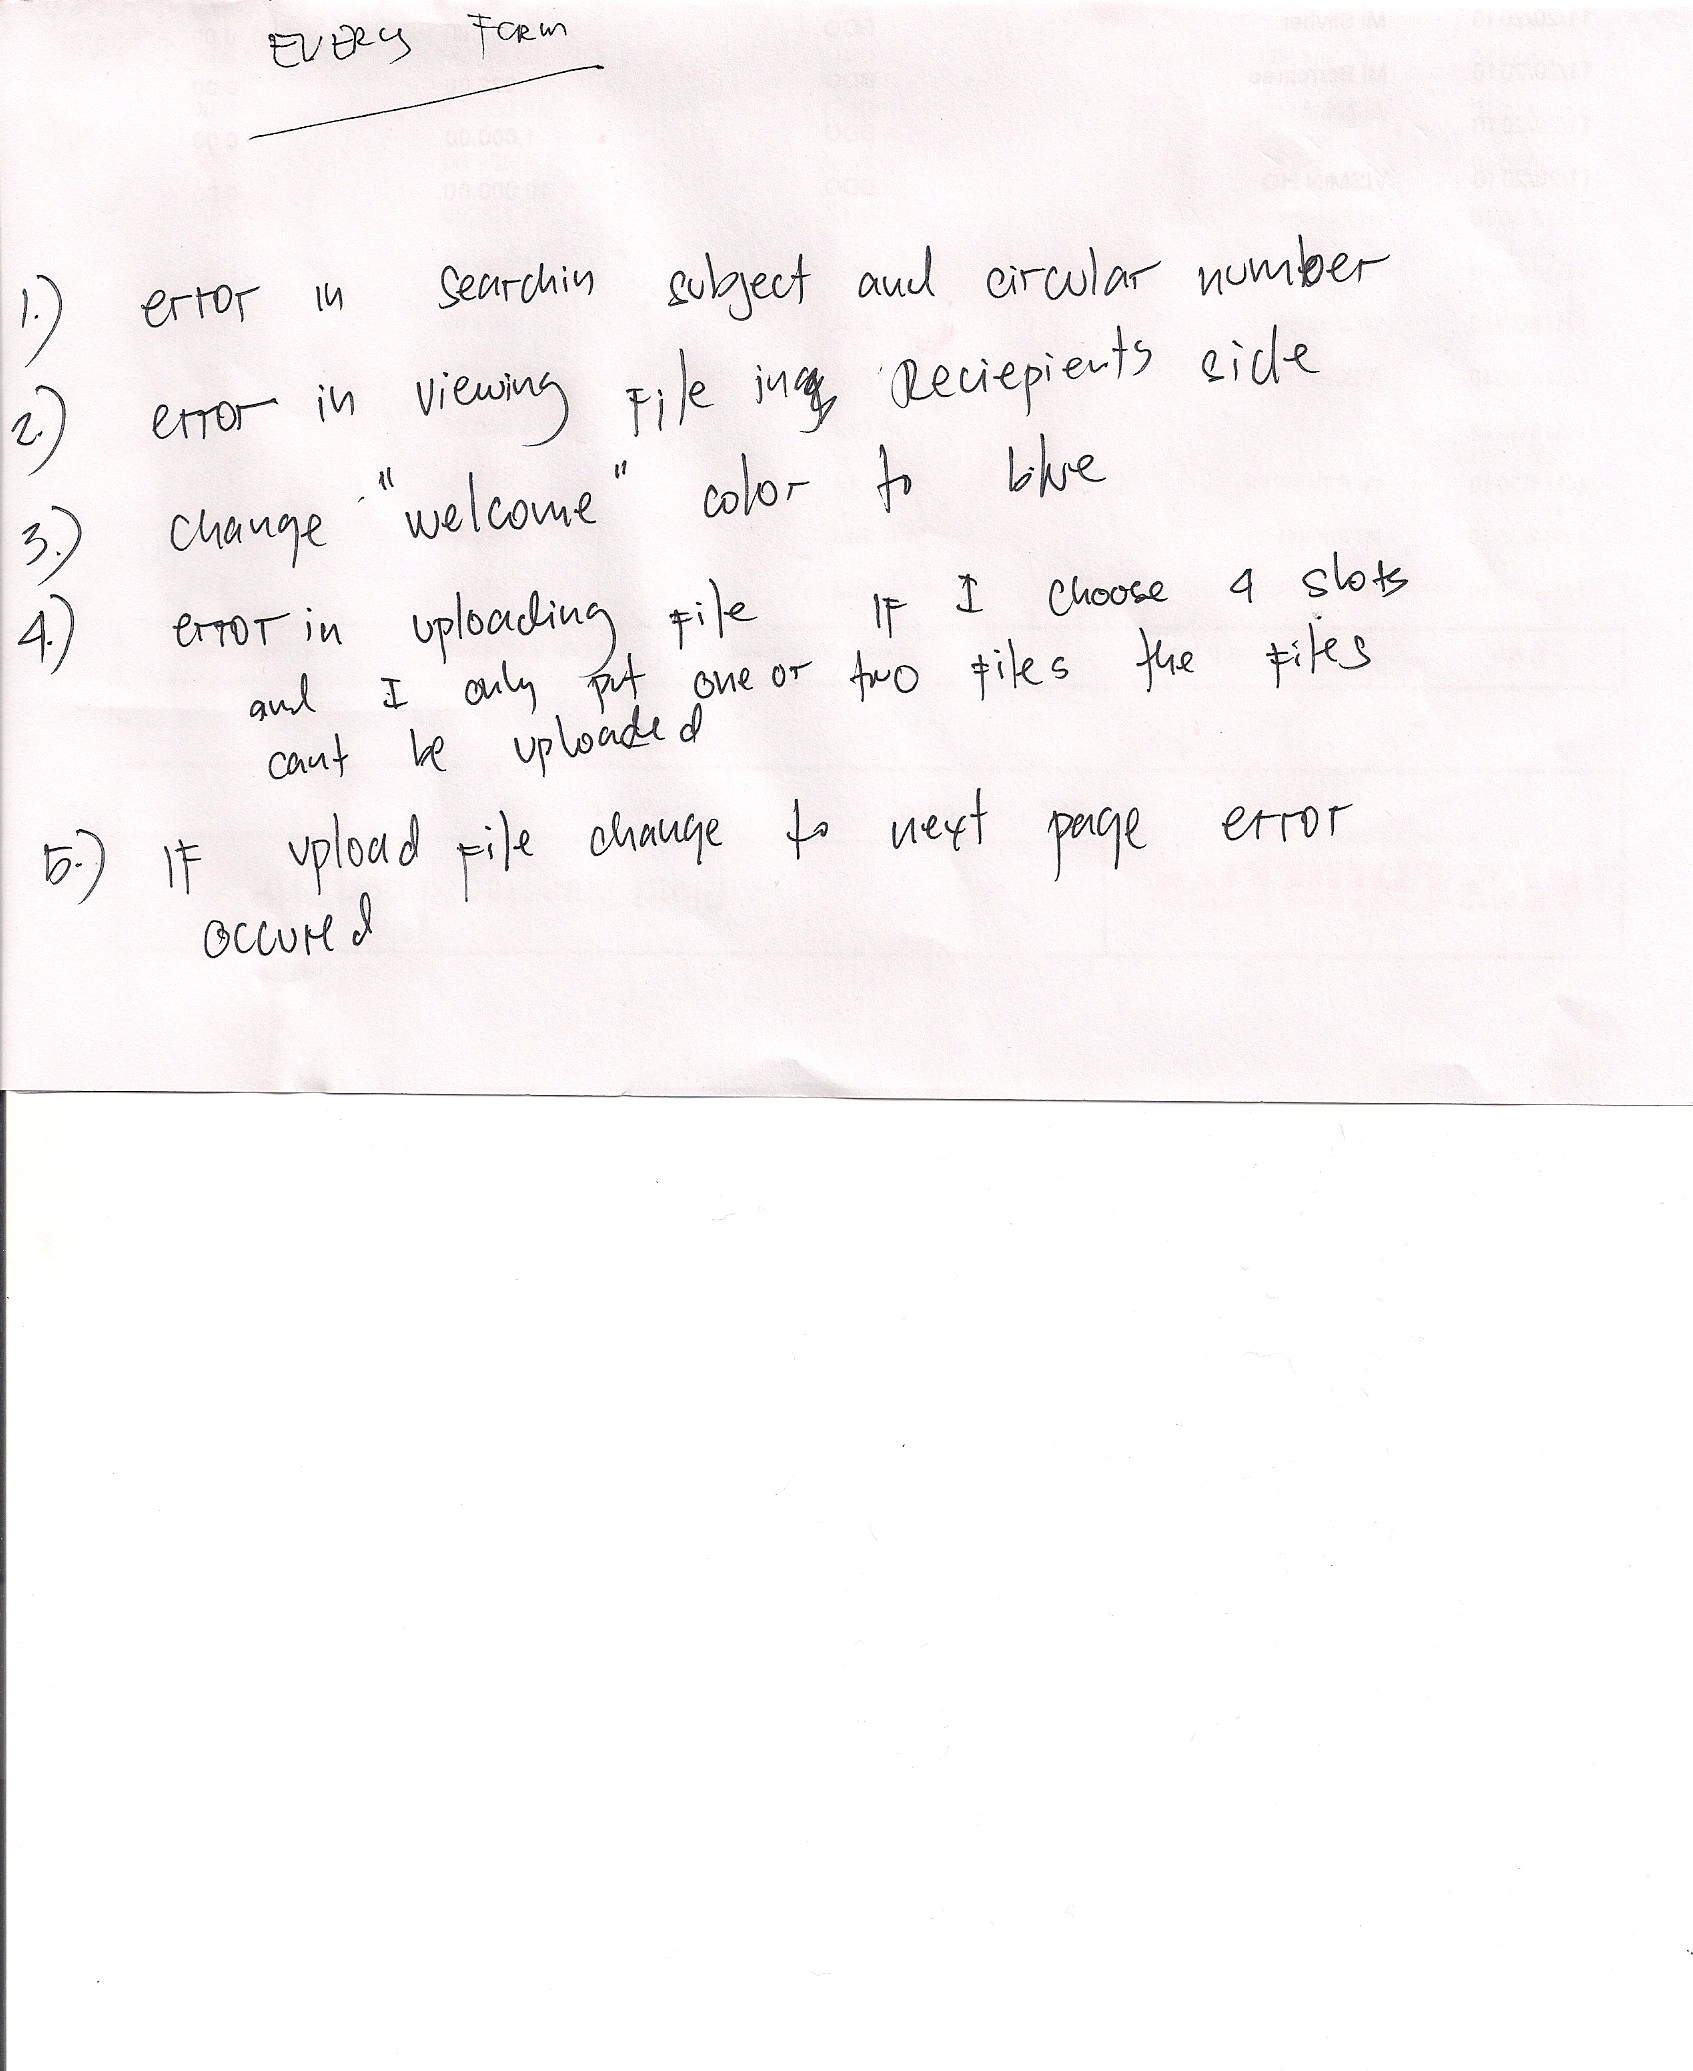 EVERY FORM
1.) error in searchin subject and circular number
2.) error in viewing file in Reciepients side
3.) change "welcome" color to blue
4.) error in uploading file IF I choose 4 slots
and I only put one or two files the files
cant be uploaded
5.) IF upload file change to next page error
occured